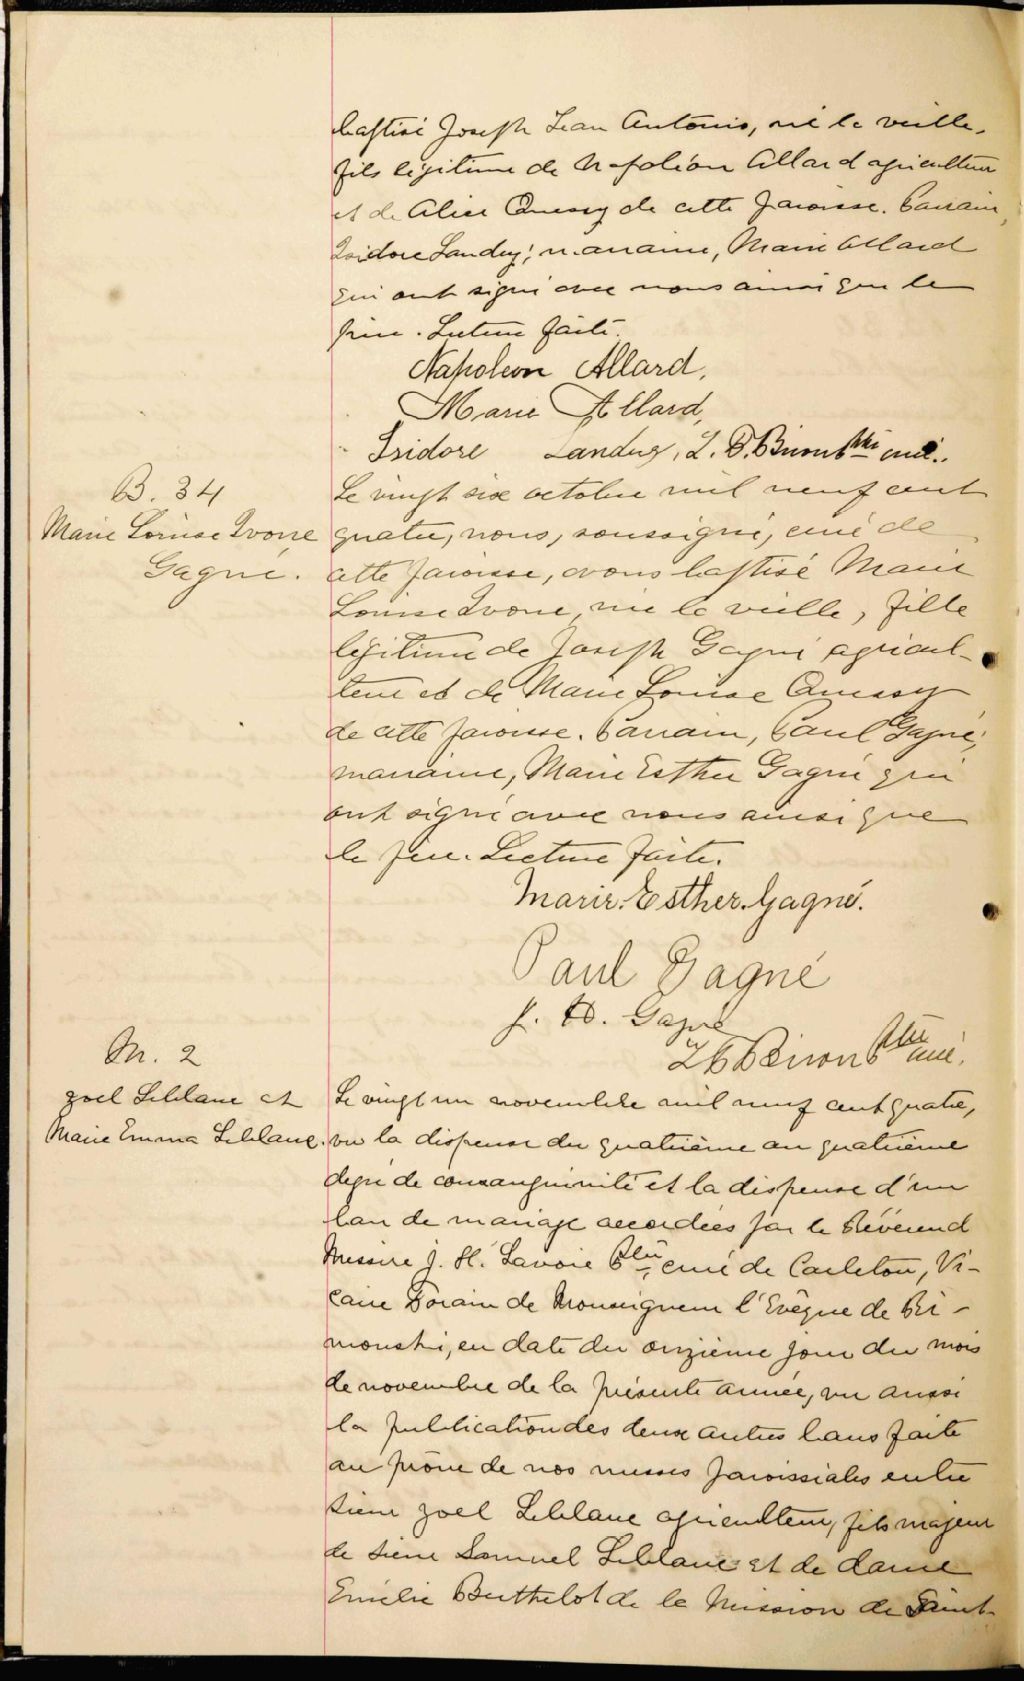 baptisé Joseph Jean Antonio, né la veille,
fils légitime de Napoléon Allard agriculteur
et de Alice Quessy de cette paroisse. Parrain,
Isidore Landry; marraine, Marie Allard
qui ont signé avec nous ainsi que le
père. Lecture faite.
Napoleon Allard,
Marie Allard,
Isidore Landry, L. P. Biron ptre curé.
B. 34
Marie Louise Ivone
Gagné.
Le vingt six octobre mil neuf cent
quatre, nous, soussigné, curé de
cette paroisse, avons baptisé Marie
Louise Ivone, née la veille, fille
légitime de Joseph Gagné agricul-
teur et de Marie Louise Quessy
de cette paroisse. Parrain, Paul Gagné,
marraine, Marie Esther Gagné qui
ont signé avec nous ainsi que
le père. Lecture faite.
Marie-Esther Gagné.
Paul Gagné
Gagné
Biron Ptre curé.
M. 2
Zoel Leblanc et
Marie Emma Leblanc.
Le vingt un novembre mil neuf cent quatre,
vu la dispense du quatrième au quatrième
degré de consanguinité et la dispense d'un
ban de mariage accordées par le Révérend
Messire J. H. Lavoie Ptre, curé de Carleton, Vi-
caire Forain de Monseigneur l'Evêque de Ri-
mouski, en date du onzième jour du mois
de novembre de la présente année, vu aussi
la publication des deux autres bans faite
au prône de nos messes paroissiales entre
Sieur Zoel Leblanc agriculteur, fils majeur
de Sieur Samuel Leblanc et de dame
Emélie Berthelot de la Mission de Saint-